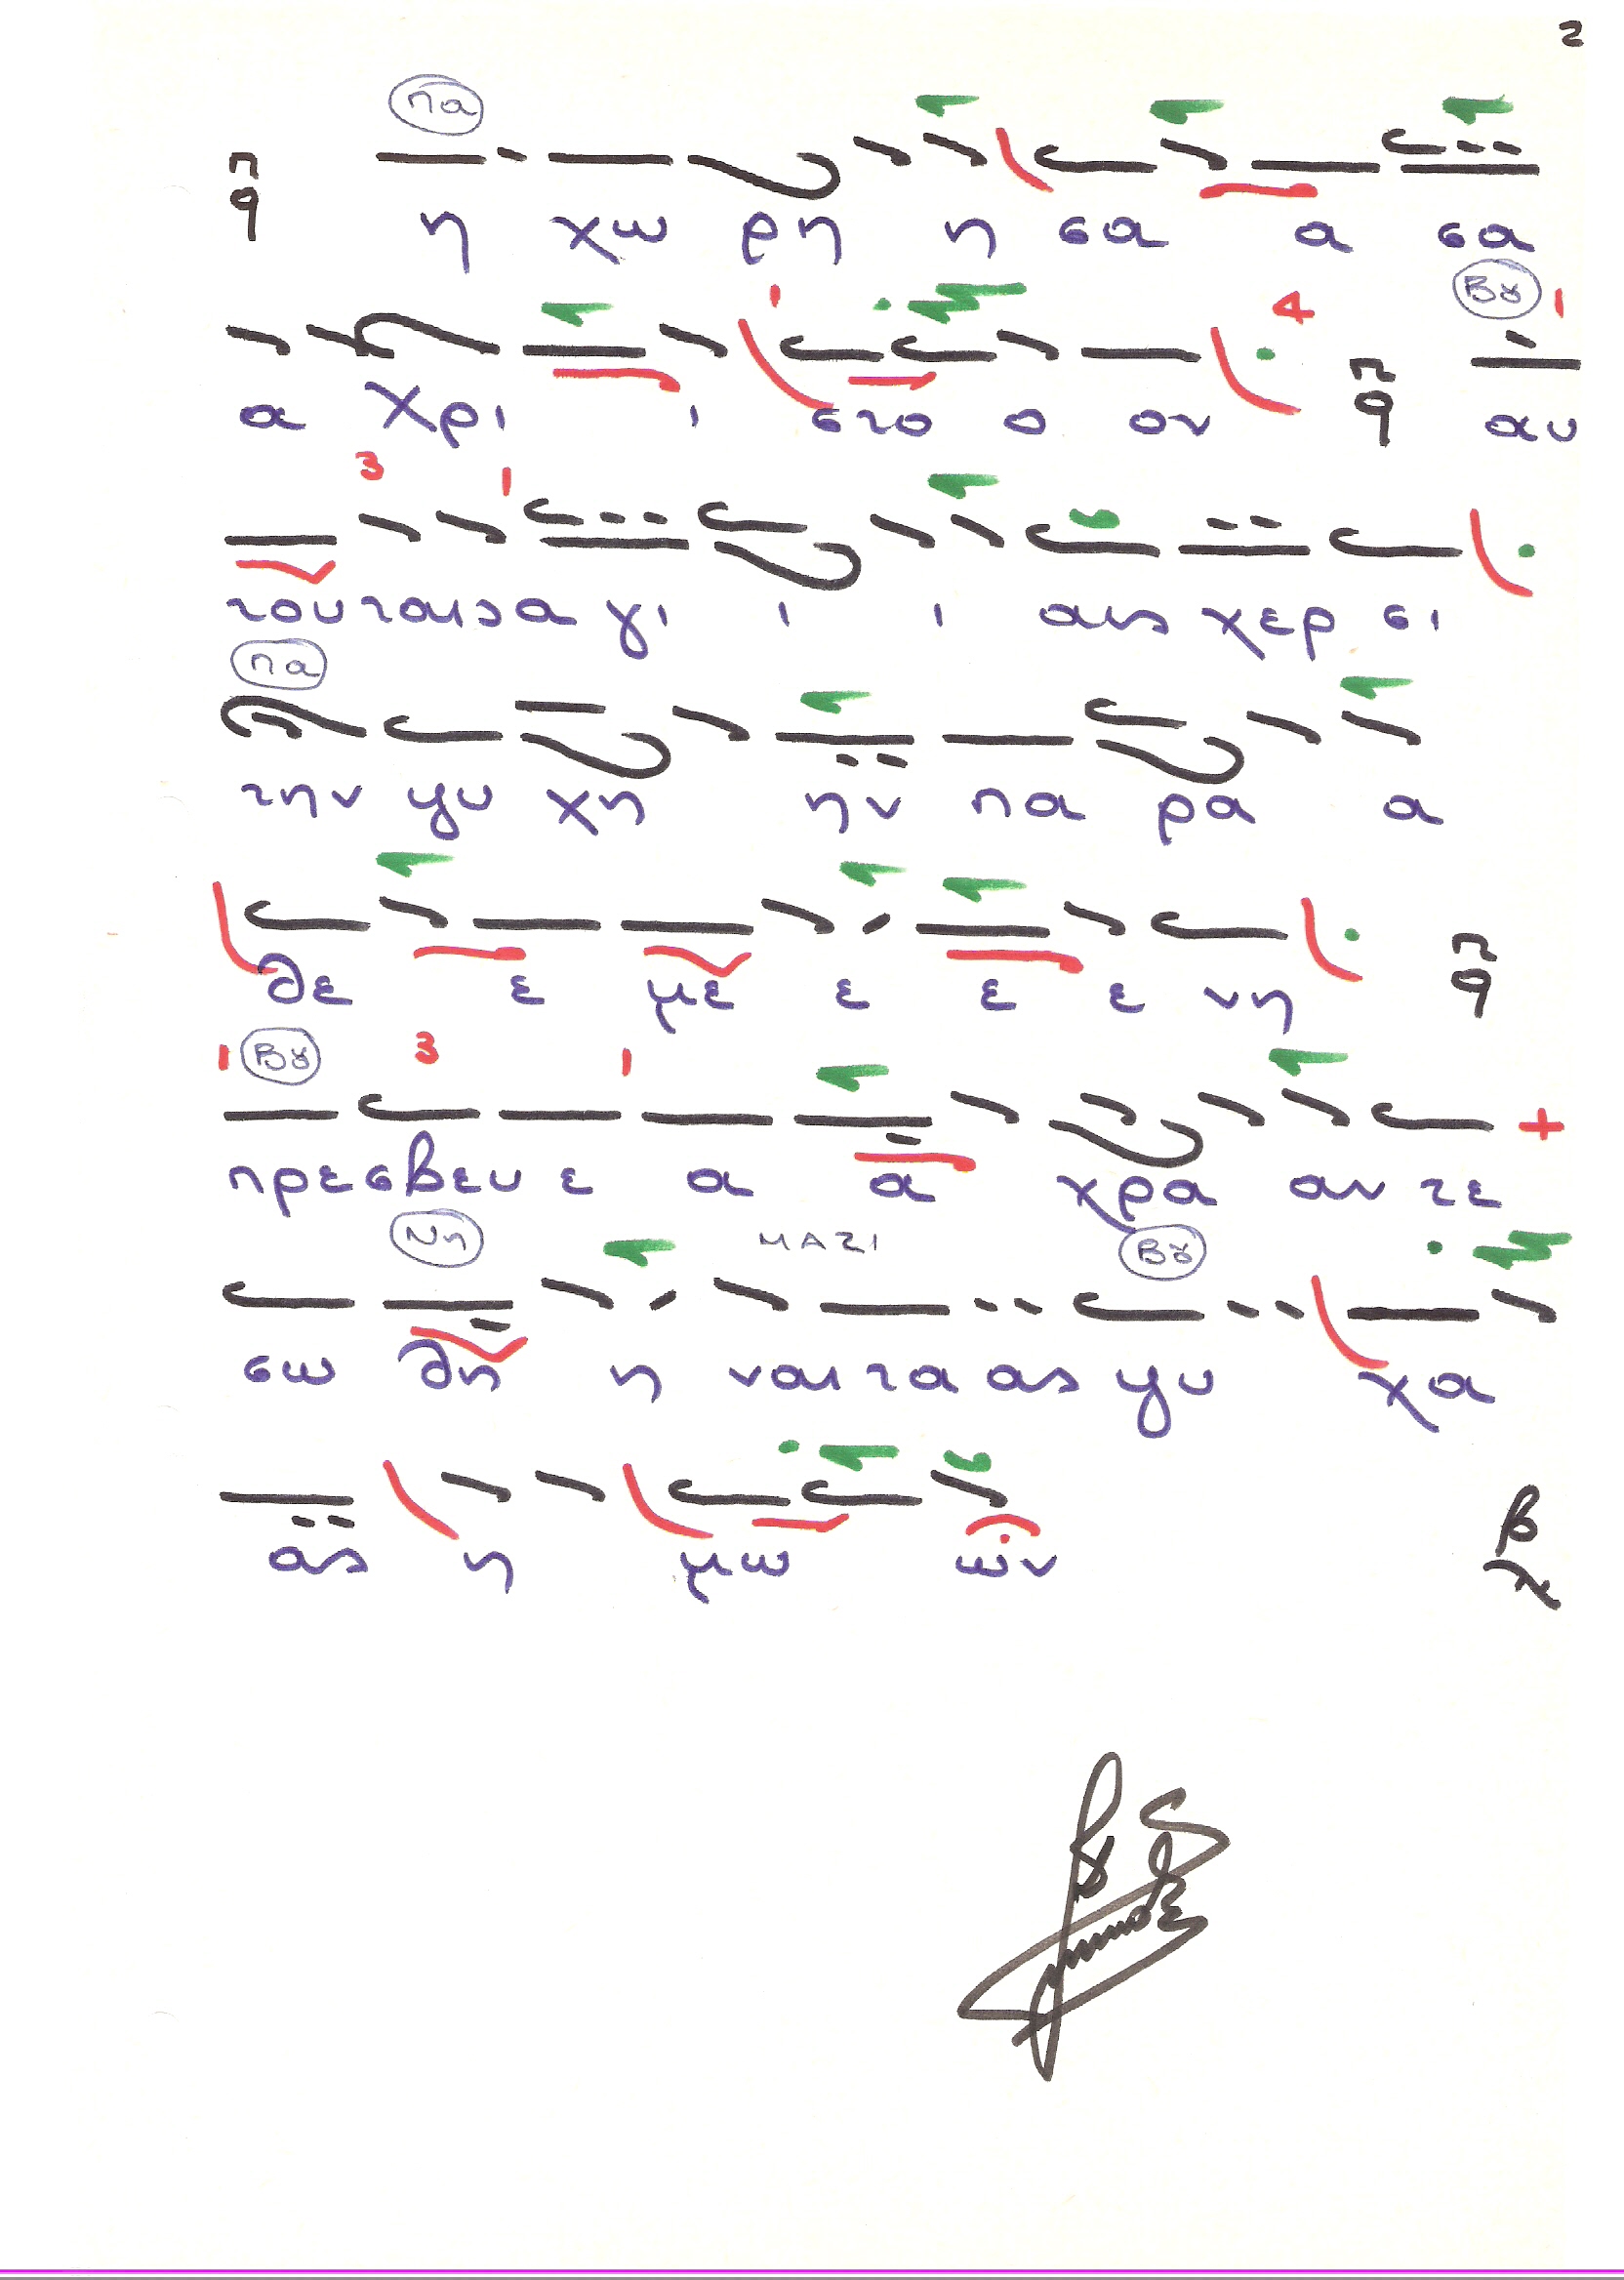 2
πα
η χω ρη η σα α σα
Βȣ 1
1 4
α Χρι ι στο ο ον αυ
3 1
του ταισ α γι ι ι αις χερ σι
πα
την ψυ χη ην πα ρα α
θε ε με ε ε ε νη
1 Βȣ 3 1
πρεσβευ ε α α χρα αν τε
Νη ΜΑΖΙ Βȣ
σω θη η ναι τα ας ψυ χα
ας η μω ων